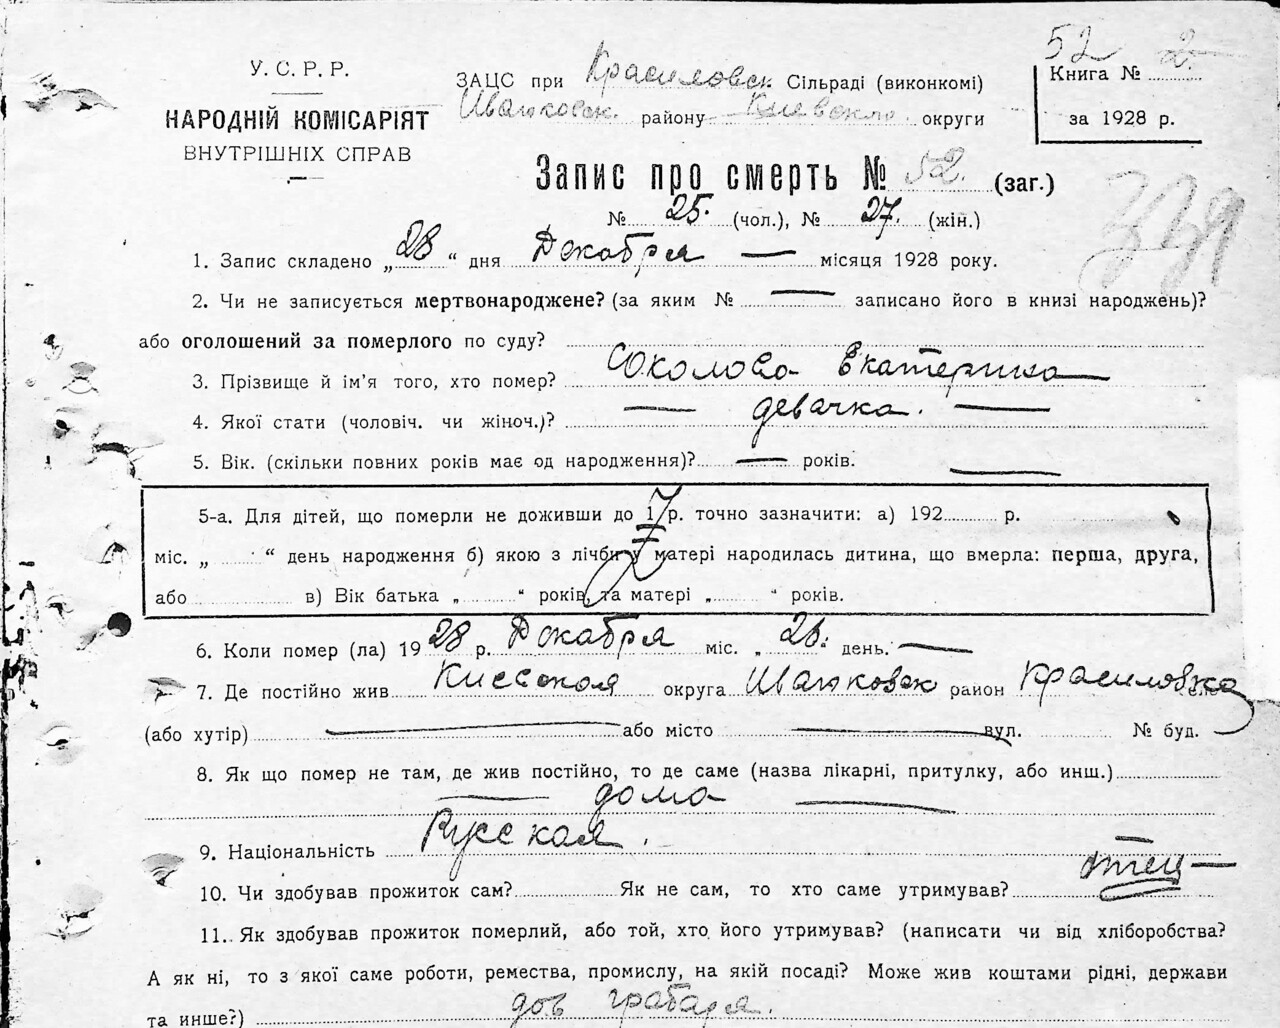 52 2.
У. С. Р. Р.
НАРОДНІЙ КОМІСАРІЯТ
ВНУТРІШНІХ СПРАВ
ЗАЦС при Красиловск. Сільраді (виконкомі)
Иванковск. району Киевского округи
Книга №
за 1928 р.
Запис про смерть № 52. (заг.)
№ 25. (чол.), № 27. (жін.)
339
1. Запис складено „28“ дня Декабря — місяця 1928 року.
2. Чи не записується мертвонароджене? (за яким № — записано його в книзі народжень)?
або оголошений за померлого по суду?
3. Прізвище й ім'я того, хто помер? Соколова Екатерина —
4. Якої стати (чоловіч. чи жіноч.)? — девачка. —
5. Вік. (скільки повних років має од народження)? — років. —
5-а. Для дітей, що померли не доживши до 1 р. точно зазначити: а) 192 р.
міс. „ “ день народження б) якою з лічби у матері народилась дитина, що вмерла: перша, друга,
або в) Вік батька „ “ років, та матері „ “ років.
6. Коли помер (ла) 1928 р. Декабря міс. „26. день. —
7. Де постійно жив Киевская округа Иванковск район Красиловка
(або хутір) — або місто — вул. № буд.
8. Як що помер не там, де жив постійно, то де саме (назва лікарні, притулку, або инш.)
— дома —
9. Національність Русская.
10. Чи здобував прожиток сам? Як не сам, то хто саме утримував? Отец —
11. Як здобував прожиток померлий, або той, хто його утримував? (написати чи від хліборобства?
А як ні, то з якої саме роботи, ремества, промислу, на якій посаді? Може жив коштами рідні, держави
та инше?) грабаря.